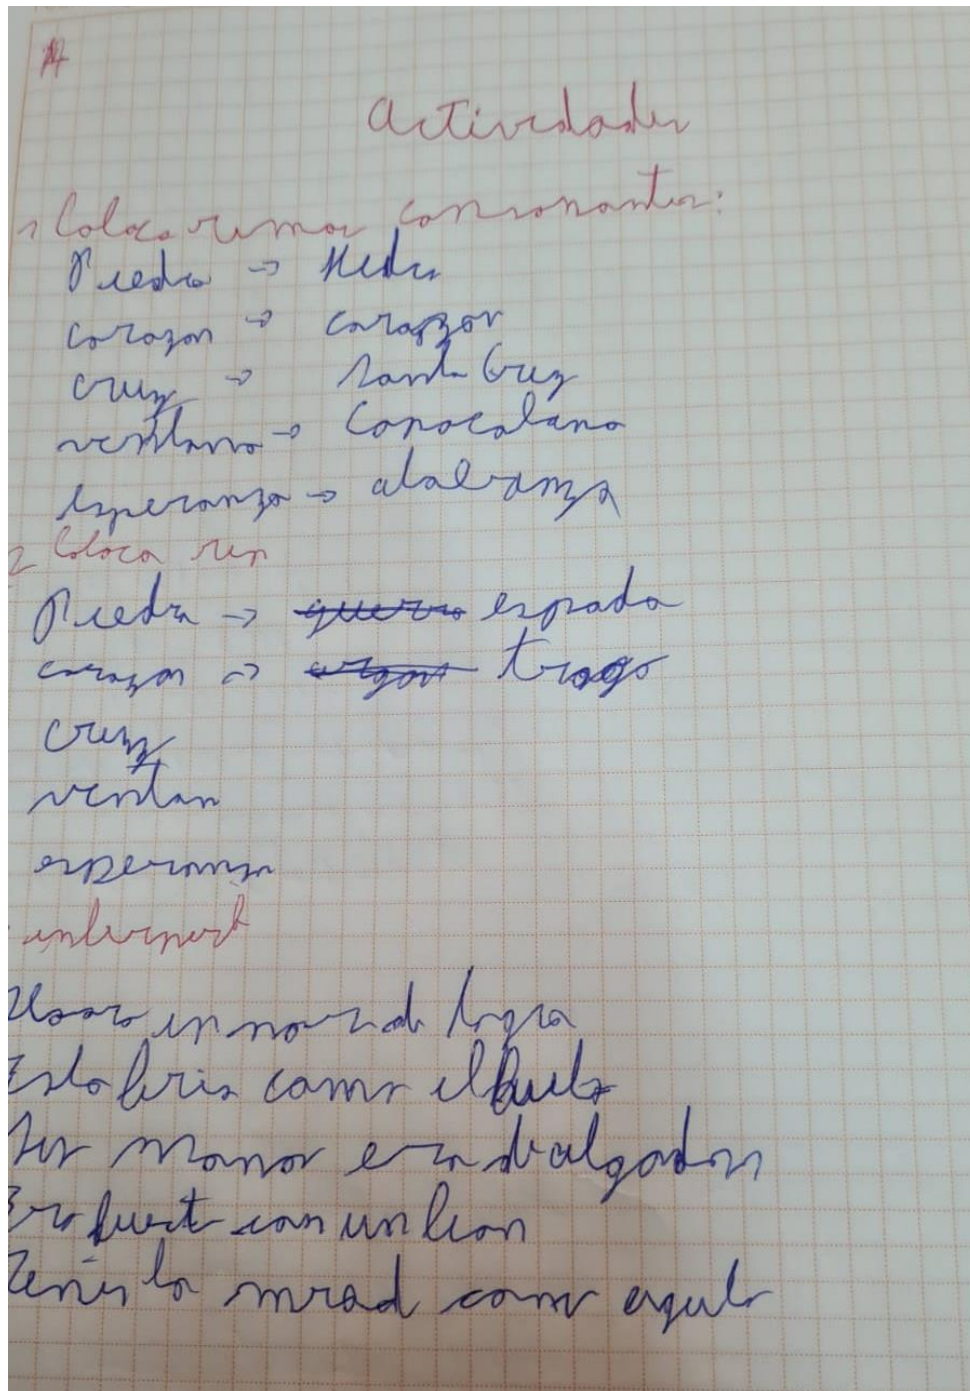 Actividades
1 Coloca rimas consonantes:
Piedra → Hiedra
corazon → corazon
cruz → Santa Cruz
ventana → Copocabana
esperanza → alabanza
2 Coloca rin
Piedra → guerra espada
corazon → trago
cruz
ventan
esperanza
interpret
un mar de
Esta fria como el hielo
Sus manos era de algodon
Era fuert com un leon
Tenia la mirad como aguila